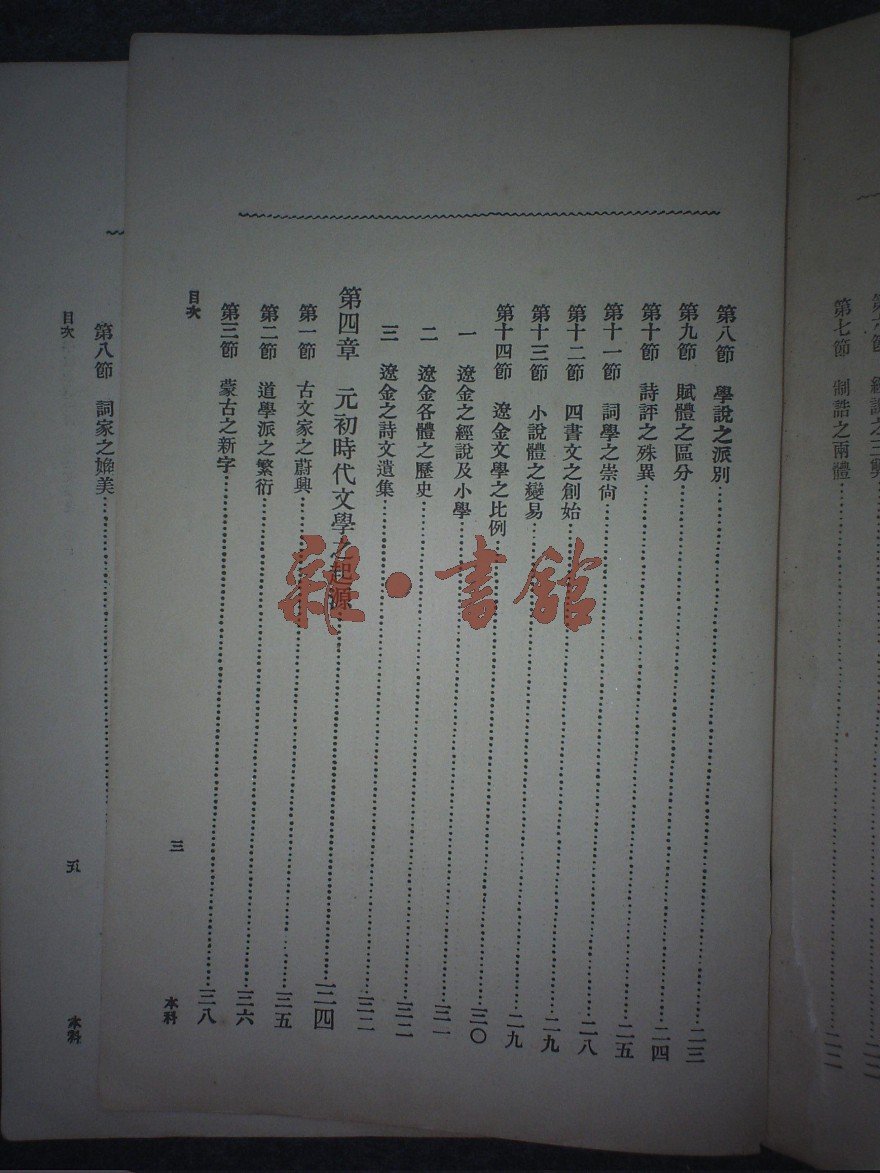 第七節　制誥之兩體……二二
第八節　學說之派別……二三
第九節　賦體之區分……二四
第十節　詩評之殊異……二五
第十一節　詞學之崇尙……二八
第十二節　四書文之創始……二九
第十三節　小說體之變易……二九
第十四節　遼金文學之比例……三〇
一　遼金之經說及小學……三一
二　遼金各體之歷史……三二
三　遼金之詩文遺集……三二
第四章　元初時代文學之起源……三四
第一節　古文家之蔚興……三五
第二節　道學派之繁衍……三六
第三節　蒙古之新字……三八
目次　三　本科
第八節　詞家之媲美……
目次　五　本科
雜·書館